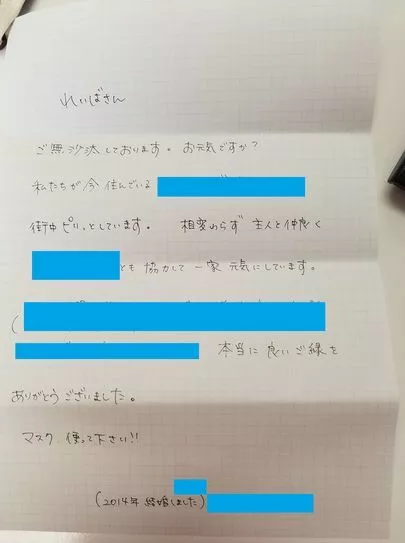 れいばさん
ご無沙汰しております。お元気ですか?
私たちが今住んでいる
街中ピリッとしています。 相変わらず主人と仲良く
とも協力して一家元気にしています。
(
本当に良いご縁を
ありがとうございました。
マスク、使って下さい!!
(2014年結婚しました)